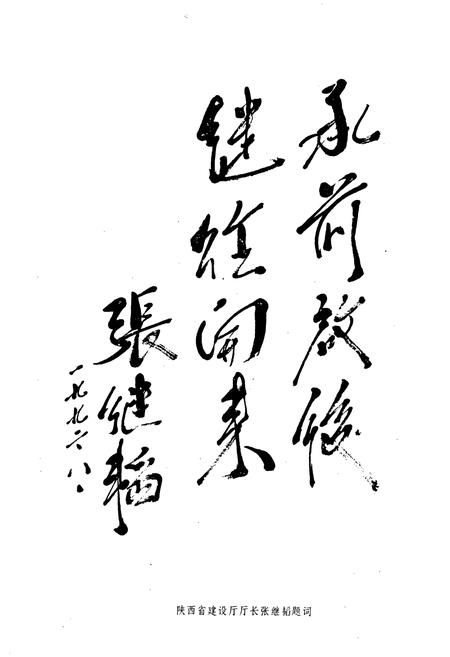 承前啟後
继往開来
張继韬
一九九六、八、
陕西省建设厅厅长张继韬题词